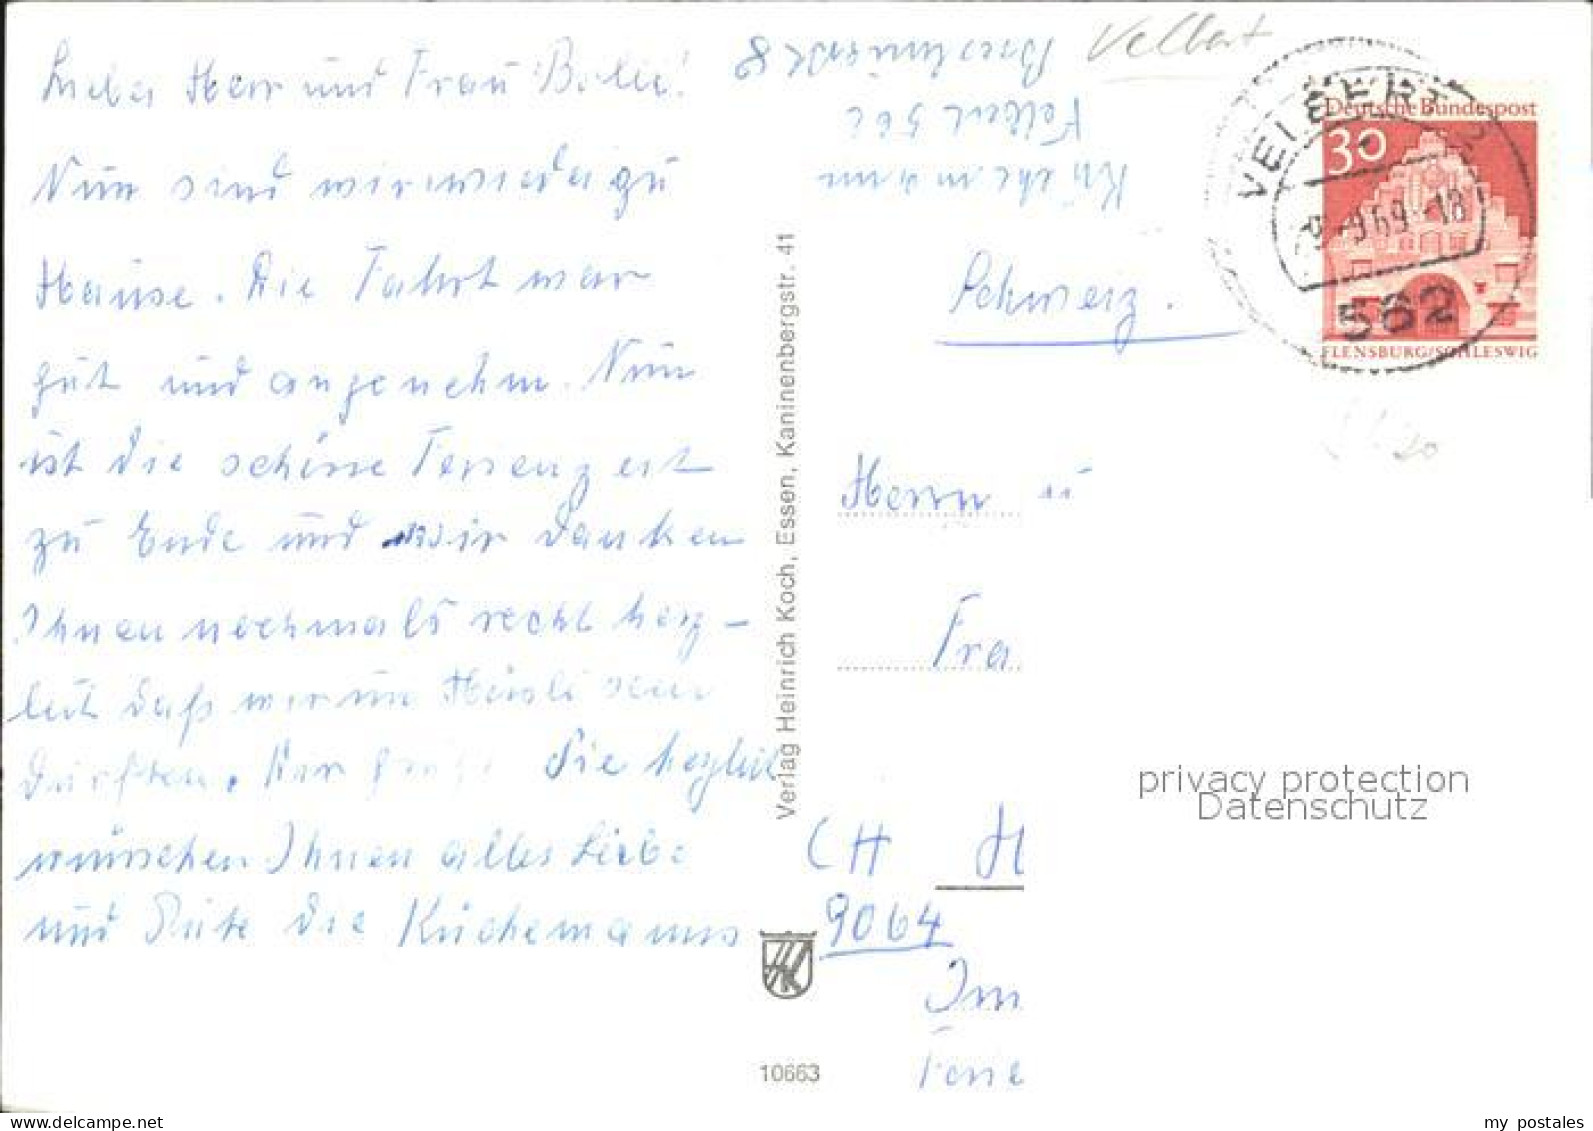 Liebe Herr und Frau
Nun sind wir wieder zu
Hause. Die Fahrt war
gut und angenehm. Nun
ist die schöne Ferienzeit
zu Ende und wir danken
Ihnen nochmals recht herz-
lich daß wir im Häusli sein
durften. Wir Sie herzlich
wünschen Ihnen alles Liebe
und Gute die Küchemanns
Velbert
8
Velbert 562
Küchemann
Schweiz.
Deutsche Bundespost
30
FLENSBURG/SCHLESWIG
VELBERT 2
-9.69-18
562
Herrn u
Fra
CH H
9064
Im
Ferie
privacy protection
Datenschutz
Verlag Heinrich Koch, Essen, Kaninenbergstr. 41
10663
www.delcampe.net
my_postales